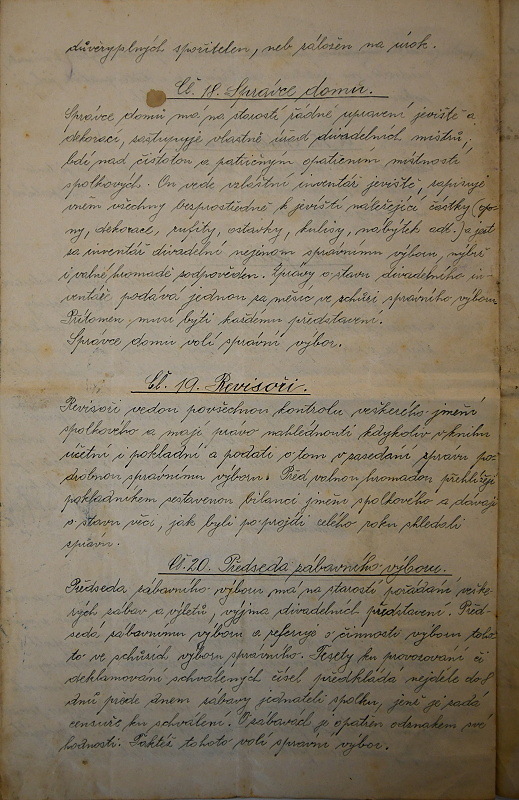 důvěryplných spořitelen, neb záložen na úrok.
Čl. 18. Správce domu.
Správce domu má na starosti řádné upravení jeviště a
dekorací, zastupuje vlastně úřad divadelních mistrů,
bdí nad čistotou a patřičným opatřením místností
spolkových. On vede zvláštní inventář jeviště, zapisuje
v něm všechny bezprostředně k jevišti náležející částky (opo-
ny, dekorace, sufity, ostavky, kulisy, nábytek atd.) a jest
za inventář divadelní nejenom správnímu výboru, nýbrž
i valné hromadě zodpověden. Zprávy o stavu divadelního in-
ventáře podává jednou za měsíc ve schůzi správního výboru
Přítomen musí býti každému představení.
Správce domu volí správní výbor.
Čl. 19. Revisoři.
Revisoři vedou povšechnou kontrolu veškerého jmění
spolkového a mají právo nahlédnouti kdykoliv v knihu
účetní i pokladní a podati o tom v zasedání zprávu po-
drobnou správnímu výboru. Před valnou hromadou přehlížejí
pokladníkem sestavenou bilanci jmění spolkového a dávají
o stavu věci, jak byli po projití celého roku shledali
zprávu.
Čl. 20. Předseda zábavního výboru.
Předseda zábavního výboru má na starosti pořádání veške-
rých zábav a výletů, vyjma divadelních představení. Před-
sedá zábavnímu výboru a referuje o činnosti výboru toho-
to ve schůzích výboru správního. Texty ku provozování či
deklamování schválených čísel předkládá nejdéle do 8
dnů přede dnem zábavy jednateli spolku, jenž je zadá
censuře ku schválení. O zábavách je opatřen odznakem své
hodnosti. Taktéž tohoto volí správní výbor.